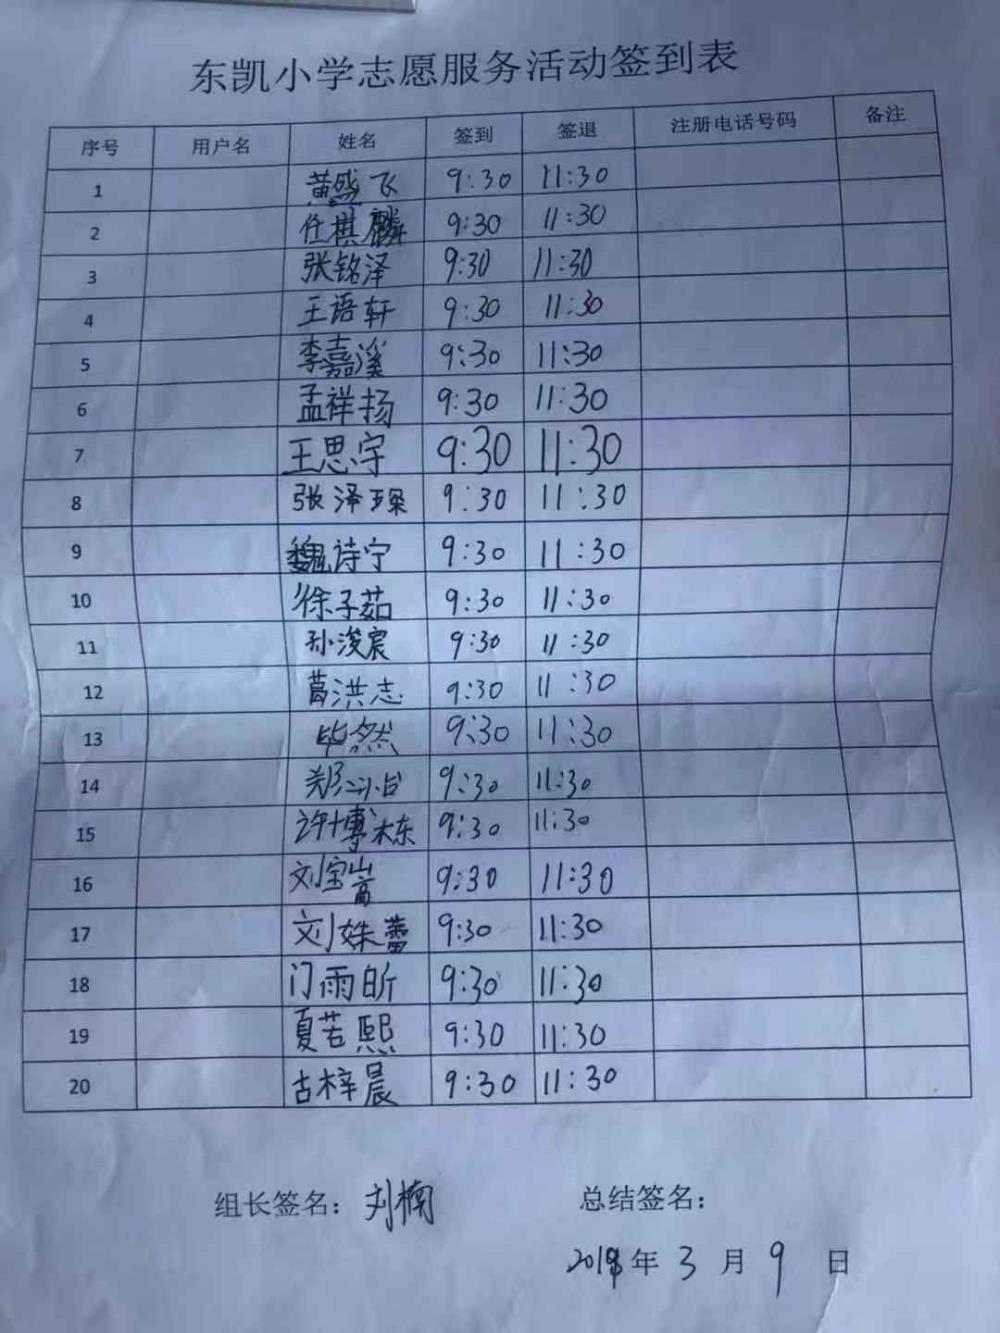 东凯小学志愿服务活动签到表
序号 用户名 姓名 签到 签退 注册电话号码 备注
1 黄盛飞 9:30 11:30
2 任棋麟 9:30 11:30
3 张铭泽 9:30 11:30
4 王语轩 9:30 11:30
5 李嘉溪 9:30 11:30
6 孟祥扬 9:30 11:30
7 王思宇 9:30 11:30
8 张泽琛 9:30 11:30
9 魏诗宁 9:30 11:30
10 徐子茹 9:30 11:30
11 孙浚宸 9:30 11:30
12 葛洪志 9:30 11:30
13 毕然 9:30 11:30
14 郑 9:30 11:30
15 许博栋 9:30 11:30
16 刘宝 9:30 11:30
17 刘姝蕾 9:30 11:30
18 门雨昕 9:30 11:30
19 夏若熙 9:30 11:30
20 古梓晨 9:30 11:30
组长签名：刘楠 总结签名：
年 3 月 9 日